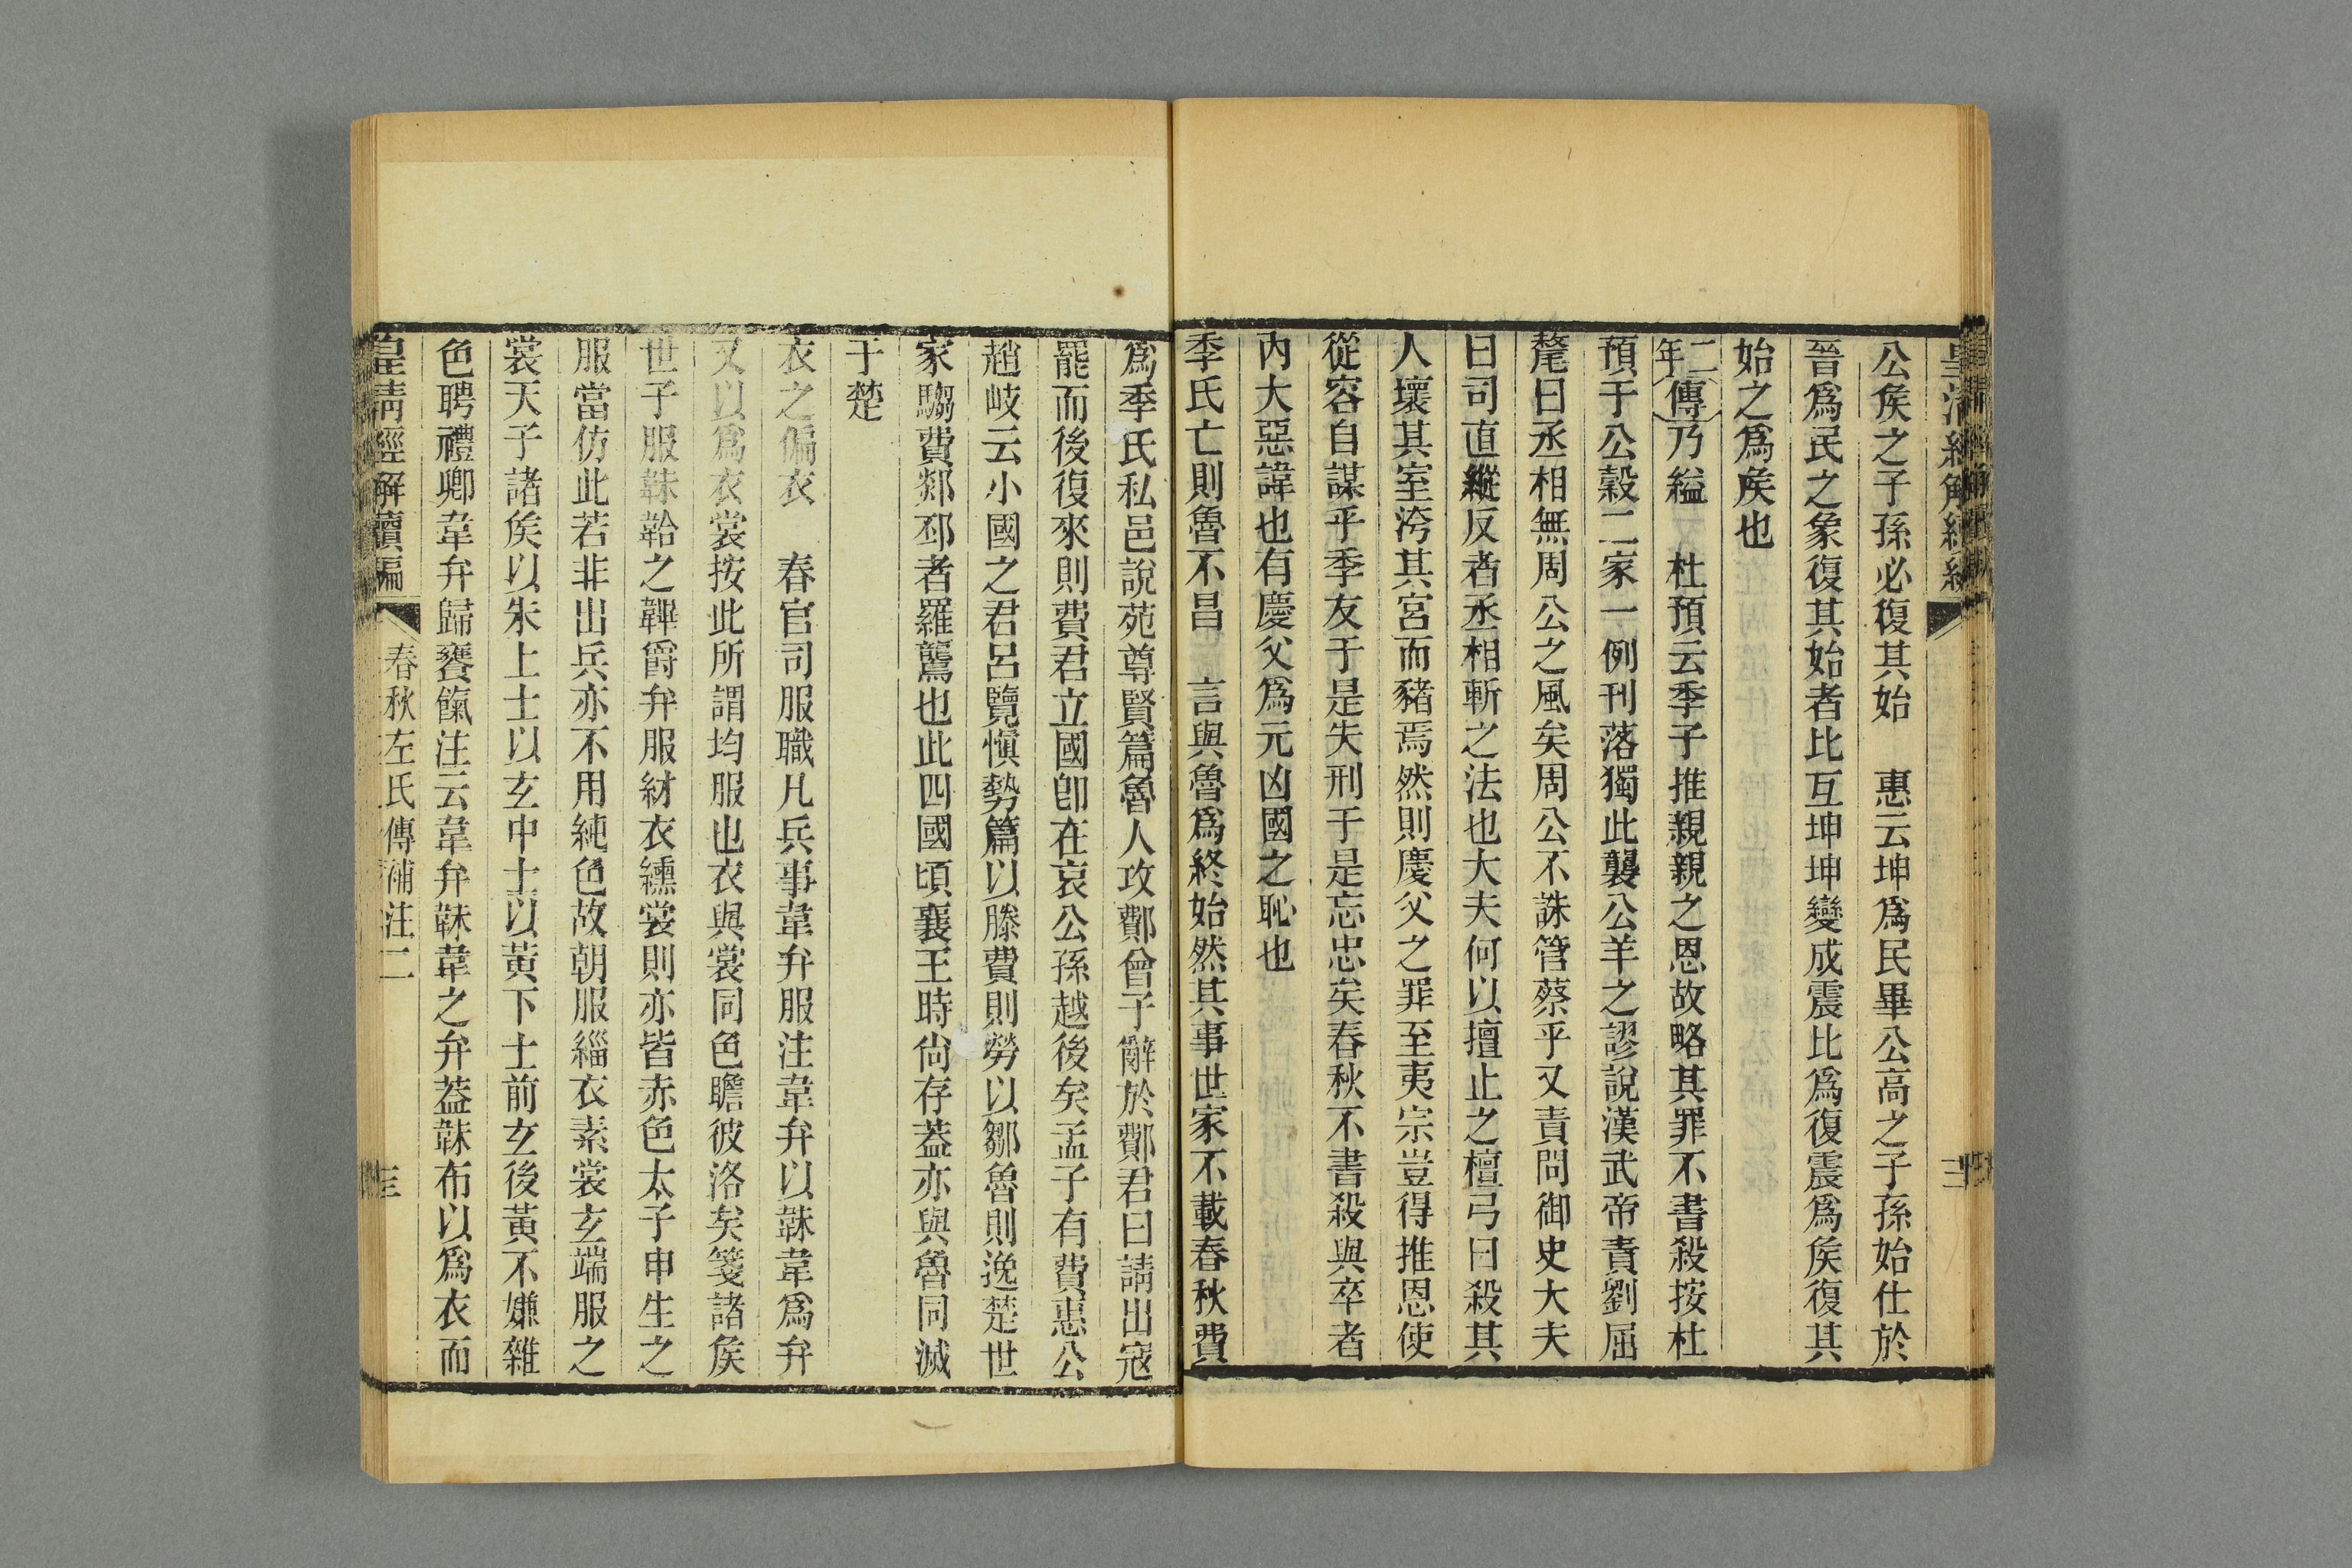 公矦之子孫必復其始　惠云坤爲民畢公高之子孫始仕於
晉爲民之象復其始者比互坤坤變成震比爲復震爲矦復其
始之爲矦也
二年傳乃縊　杜預云季子推親親之恩故略其罪不書殺按杜
預于公穀二家一例刊落獨此襲公羊之謬說漢武帝責劉屈
氂曰丞相無周公之風矣周公不誅管蔡乎又責問御史大夫
曰司直縱反者丞相斬之法也大夫何以擅止之檀弓曰殺其
人壞其室洿其宮而豬焉然則慶父之罪至夷宗豈得推恩使
從容自謀乎季友于是失刑于是忘忠矣春秋不書殺與卒者
內大惡諱也有慶父爲元凶國之恥也
季氏亡則魯不昌　言與魯爲終始然其事世家不載春秋費
爲季氏私邑說苑尊賢篇魯人攻鄪曾子辭於鄪君曰請出寇
罷而後復來則費君立國卽在哀公孫越後矣孟子有費惠公
趙岐云小國之君呂覽愼勢篇以滕費則勞以鄒魯則逸楚世
家騶費郯邳者羅鸗也此四國頃襄王時尙存葢亦與魯同滅
于楚
衣之偏衣　春官司服職凡兵事韋弁服注韋弁以韎韋爲弁
又以爲衣裳按此所謂均服也衣與裳同色瞻彼洛矣箋諸矦
世子服韎韐之韠爵弁服紂衣纁裳則亦皆赤色太子申生之
服當仿此若非出兵亦不用純色故朝服緇衣素裳玄端服之
裳天子諸矦以朱上士以玄中士以黃下士前玄後黃不嫌雜
色聘禮卿韋弁歸饔餼注云韋弁韎韋之弁葢韎布以爲衣而
皇淸經解續編　春秋左氏傳補注二